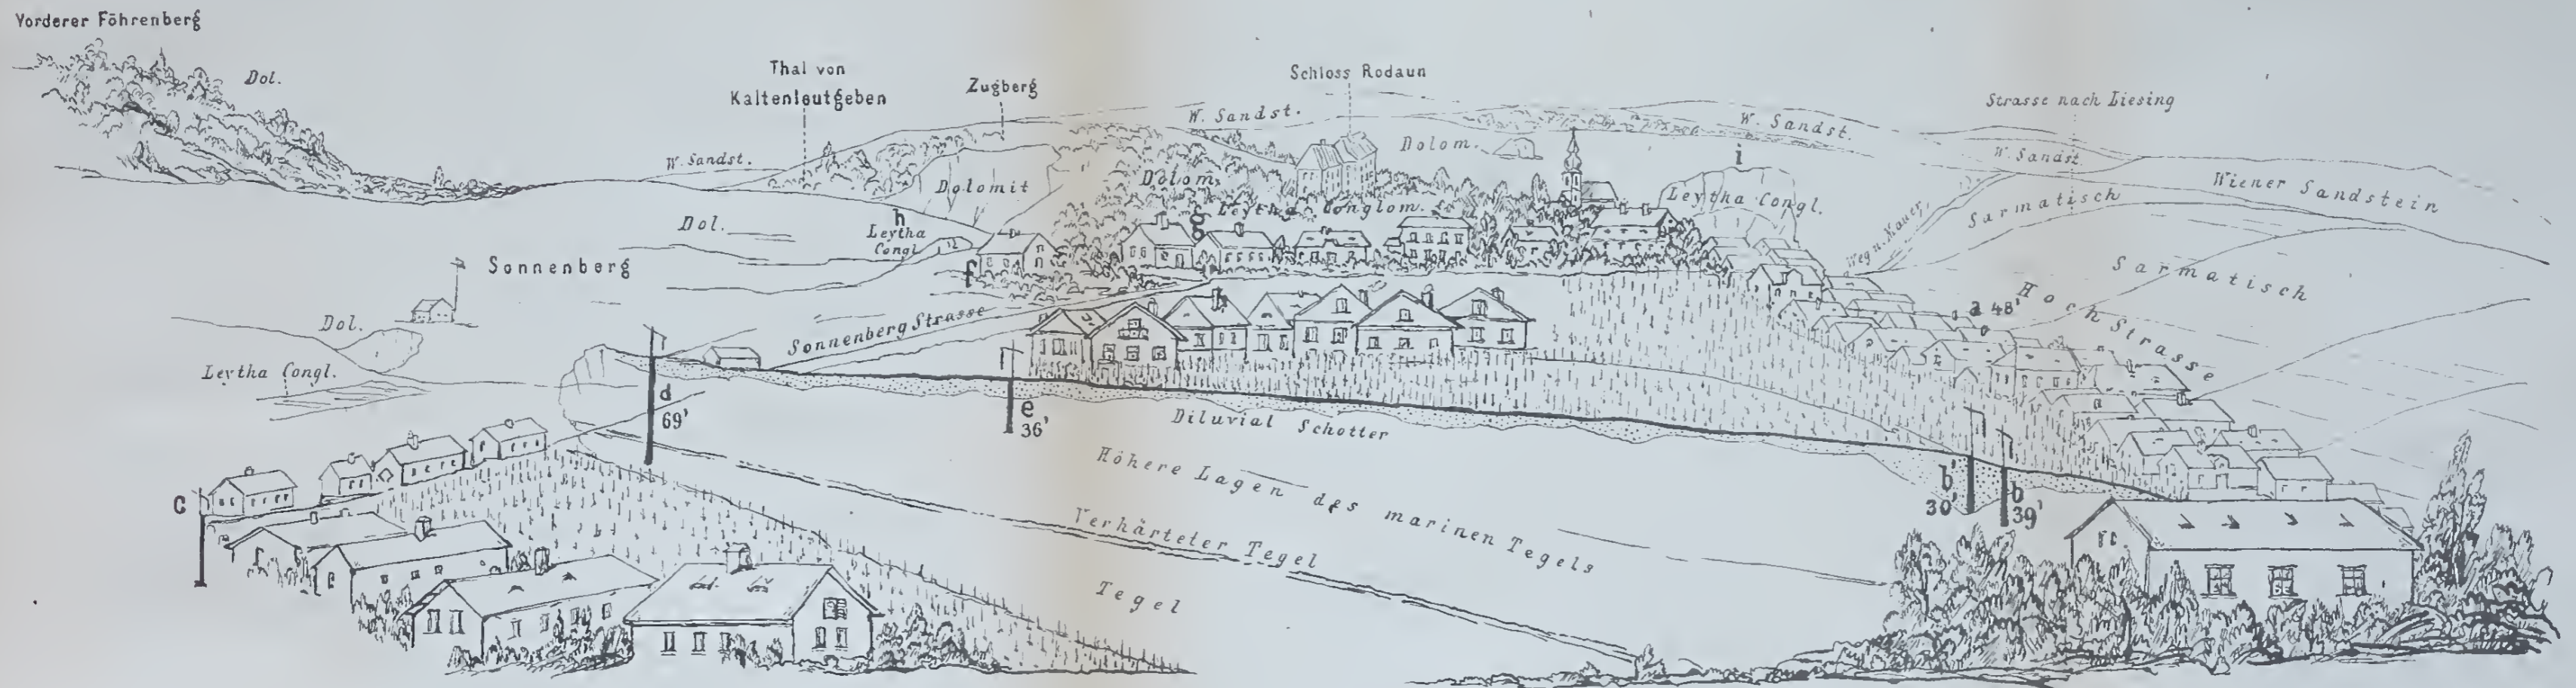 Vorderer Föhrenberg
Dol.
Thal von
Kaltenleutgeben
Zugberg
Schloss Rodaun
Strasse nach Liesing
W. Sandst.
W. Sandst.
W. Sandst.
W. Sandst.
Wiener Sandstein
Dolomit
Dolom.
Dolom.
i
Leytha Congl.
Leytha Conglom.
Sarmatisch
Weg n. Mauer
Sarmatisch
Dol.
h
Leytha
Congl.
g
f
Sonnenberg
Dol.
Leytha Congl.
Sonnenberg Strasse
a 48'
Hoch Strasse
d
69'
e
36'
Diluvial Schotter
Höhere Lagen des marinen Tegels
Verhärteter Tegel
Tegel
c
b'
30'
b
39'